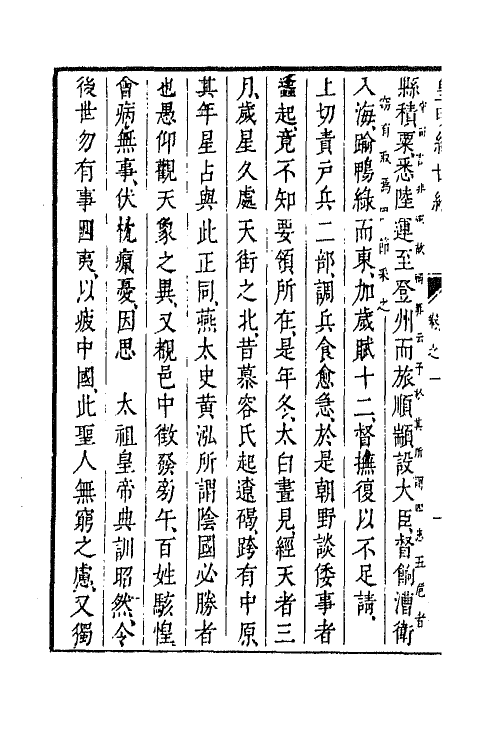 縣積粟悉陸運至登州而旅順顓設大臣督餉漕衛
入海踰鴨綠而東加歲賦十二督撫復以不足請
上切責戶兵二部調兵食愈急於是朝野談倭事者
蠭起竟不知要領所在是年冬太白晝見經天者三
月歲星久處天街之北昔慕容氏起遼碣跨有中原
其年星占與此正同燕太史黃泓所謂陰國必勝者
也愚仰觀天象之異又覩邑中徵發旁午百姓駭惶
會病無事伏枕癙憂因思　太祖皇帝典訓昭然令
後世勿有事四夷以疲中國此聖人無窮之慮又獨
卷之一